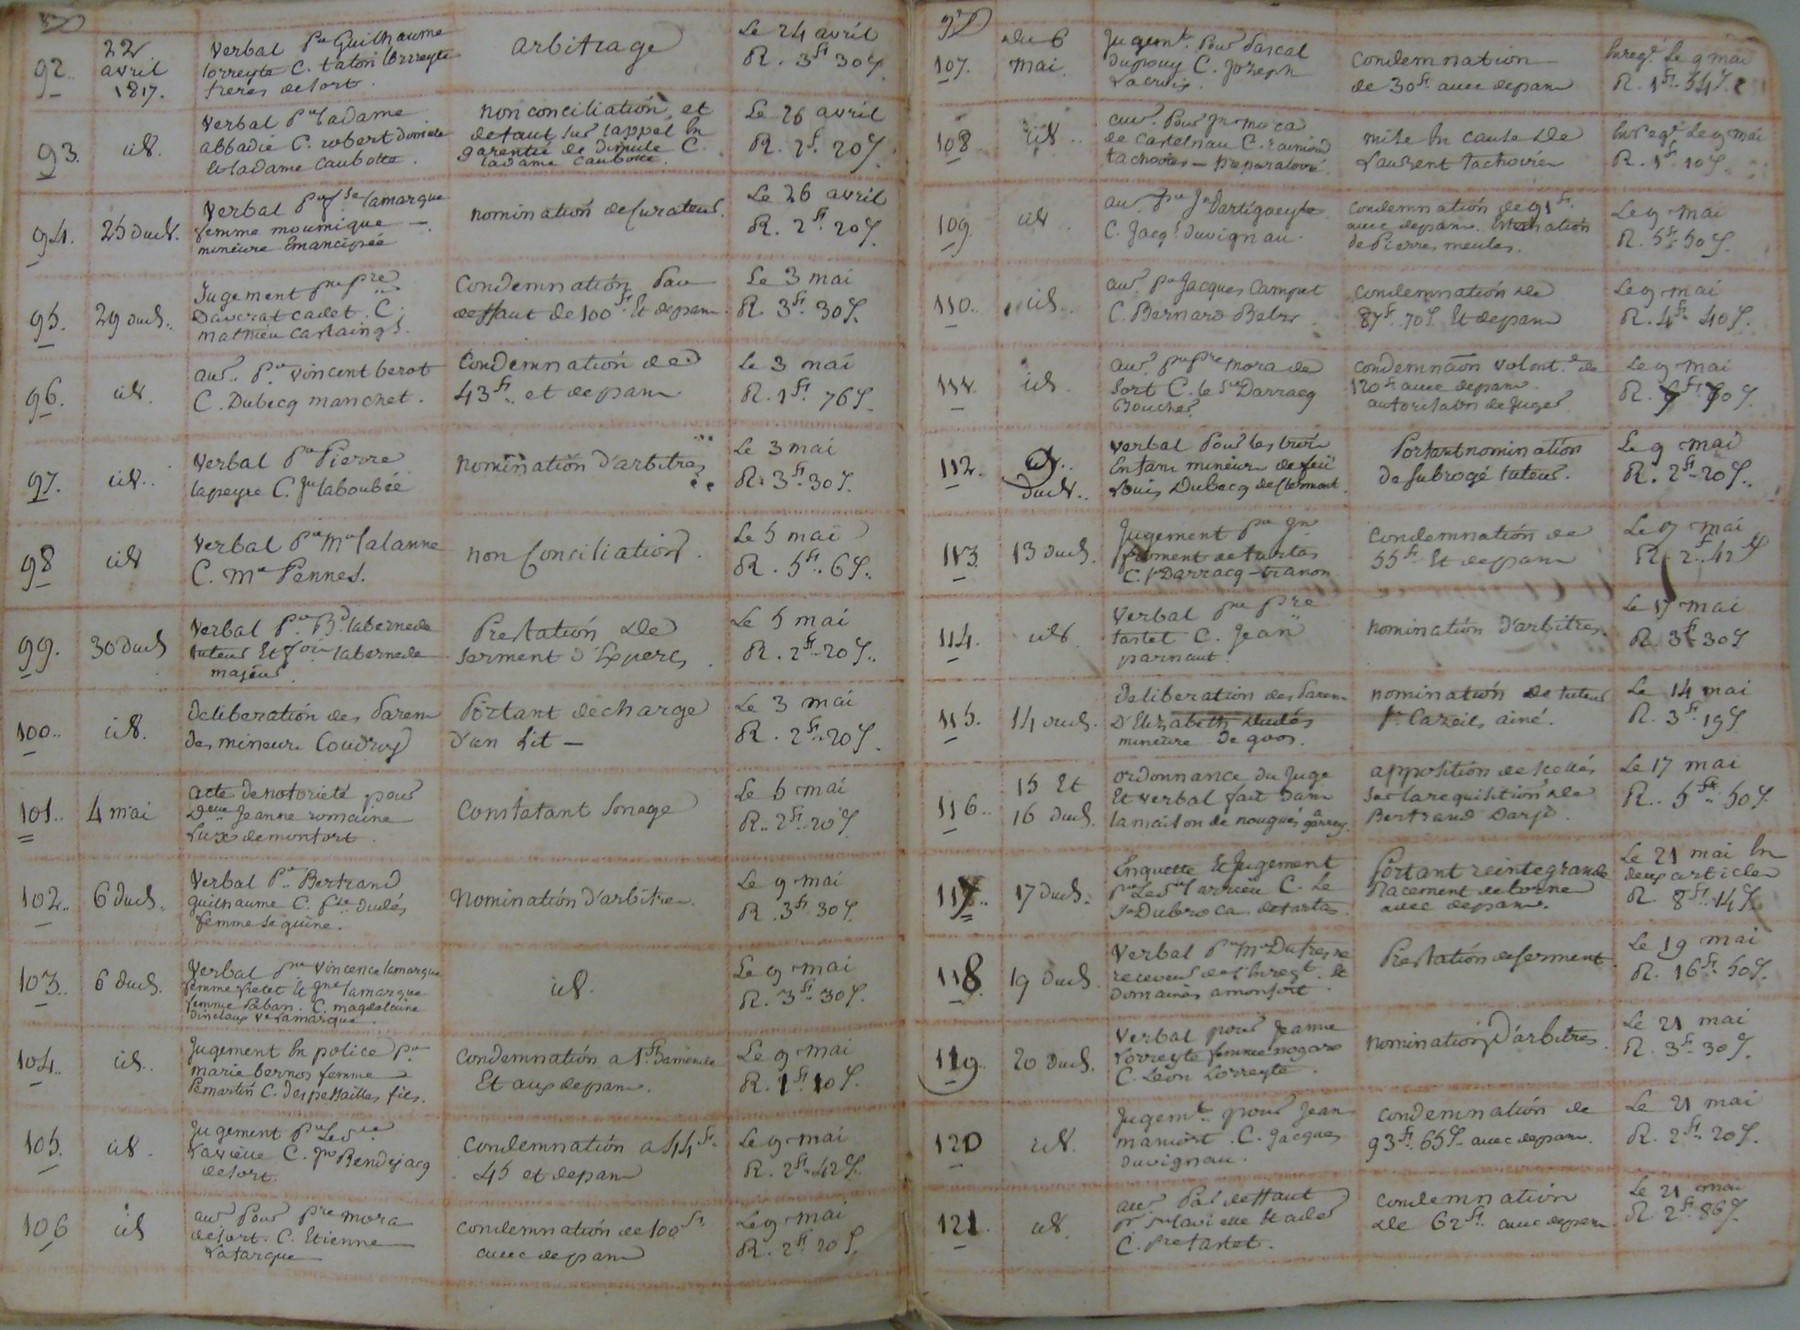 92. 22 avril 1817.
Verbal Pr Guilhaume
lorreyte C. taton lorreyte
freres de sort.
arbitrage
Le 24 avril
R. 3ft 30c.
93. id.
Verbal Pr ladame
abbadie C. robert dimiele
et ladame Caubotte.
non conciliation, et
defaut sur lappel en
garentie de dimiele C.
ladame Caubotte.
Le 26 avril
R. 2ft. 20c.
94. 25 dud.
Verbal pr lamarque
femme moumique
mineure Emancipée
nomination de Curateur.
Le 26 avril
R. 2ft 20c.
95. 29 dud.
Jugement pr pre
Davcrat cadet. C.
mathieu Castaings.
Condemnation par
deffaut de 100ft Et depans
Le 3 mai
R. 3ft 30c.
96. id.
autre. Pr vincent berot
C. Dubecq manchet.
Condemnation de
43ft. et depans
Le 3 mai
R. 1ft 76c.
97. id.
Verbal Pr Pierre
lapeyre C. jn laboubée
nomination d'arbitres
Le 3 mai
R. 3ft 30c.
98 id
Verbal Pr Me lalanne
C. Me Pennes.
non Conciliation.
Le 5 mai
R. 5ft. 6c.
99. 30 dud
Verbal Pr Bd labernede
tuteur Et labernede
majeur.
Prestation de
serment d'Experts
Le 5 mai
R. 2ft 20c.
100. id.
Deliberation des parens
des mineurs Coudroy
Portant decharge
d'un lit —
Le 3 mai
R. 2ft 20c.
101. 4 mai
acte de notorieté pour
Deme Jeanne romaine
lux de monfort.
Constatant sonage
Le 5 mai
R. 2ft 20c
102. 6 dud.
Verbal Pr Bertrand
guilhaume C. dulés
femme sequine.
Nomination d'arbitres.
Le 9 mai
R. 3ft 30c.
103. 6 dud.
Verbal pr vincence lamarque
femme Et lamarque
femme Paban. C. magdelaine
ve lamarque.
id.
Le 9 mai
R. 3ft 30c.
104. id.
Jugement en police pr
marie bernos femme
Pemartin C. Despessailles fils.
Condemnation a 1ft damende
Et aux depans.
Le 9 mai
R. 1ft 10c.
105. id.
Jugement pr le Sieur
Lavieue C. jn Bendejacq
de sort.
Condemnation a 44ft.
45 et depans
Le 9 mai
R. 2ft 42c.
106 id
autre Pour pre mora
de sort. C. Etienne
Latarque
condemnation de 100ft
avec depans
Le 9 mai
R. 2ft 20c.
107. du 6 mai.
Jugemt. Pour Pascal
Dupouy C. joseph
Lacroix.
condemnation
de 30ft avec depans
Enregé. Le 9 mai
R. 1ft 54c.
108. id.
autre. Pour jn moca
de Castelnau C. raimond
tachoires — preparatoire
mise en cause de
Laurent tachoires
Enregé Le 9 mai
R. 1ft 10c.
109. id
autre pr jn Dartigueyte
C. Jacqs duvignau.
condemnation de 91ft
avec depans.
de Pierres meules.
Le 9 mai
R. 5ft 50c.
110. id.
autre. pr Jacques Campet
C. Bernard
condemnation de
87ft. 70c Et depans
Le 9 mai
R. 4ft 40c.
111. id.
autre. pr pre mora de
sort C. le Sr Darracq
Boucher
condemnaon volont.e de
120ft avec depans.
autorisation de juger
Le 9 mai
112. dud.
Verbal Pour les trois
Enfans mineurs de feu
Louis Dubecq de clermont.
Portant nomination
de subrogé tuteur.
Le 9 mai
R. 2ft 20c.
113. 13 dud.
Jugement pr jn
froment de tartas
C. Darracq-tranon
condemnation de
55ft Et depans
Le 9 mai
R. 2ft 42c
114. id.
Verbal pr pre
tastet C. Jean
parnaut.
nomination d'arbitres.
Le 17 mai
R. 3ft 30c
115. 14 dud.
Deliberation des parens
D'Elizabeth dulés
mineure de goos.
nomination de tuteur
pr Careils ainé.
Le 14 mai
R. 3ft 19c
116. 15 Et 16 dud.
ordonnance du Juge
Et verbal fait dans
la maison de nougués a garrey.
apposition de scellés
sur la requisition de
Bertrand Darjo.
Le 17 mai
R. 5ft 50c
117. 17 dud.
Enquette Et Jugement
pr Le Sr larrieu C. Le
Sr Dubroca de tartas.
Portant reintegrande
Placement de borne
avec depans.
Le 21 mai En
deux articles
R. 8ft 14c
118. 19 dud
Verbal Pr Mr Dufresne
receveur de l'Enregt. Et
Domaines a monfort.
Prestation de serment.
Le 19 mai
R. 16ft 50c.
119. 20 dud.
Verbal pour Jeanne
Lorreyte femme nogaro
C. Leon Lorreyte.
nomination d'arbitres.
Le 21 mai
R. 3ft 30c.
120 id.
Jugemt. pour Jean
C. Jacques
duvignau.
condemnation de
93ft 65c. avec depans.
Le 21 mai
R. 2ft 20c.
121. id.
autre. Par deffaut
pr lavieue
C. pre tastet.
condemnation
de 62ft. avec depans
Le 21 mai
R. 2ft 86c.